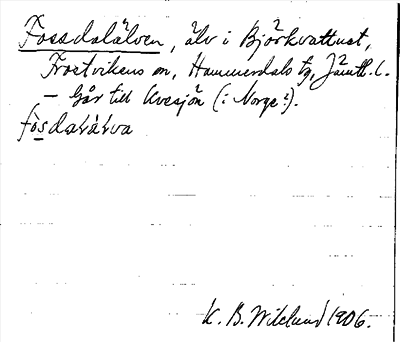 Fossdalälven, älv i Björkvattnet,
Frostvikens sn, Hammerdals tg, Jämtl. l.
— Går till Kvesjön (i Norge?).
fòsdaLáLva
K. B. Wiklund 1906.